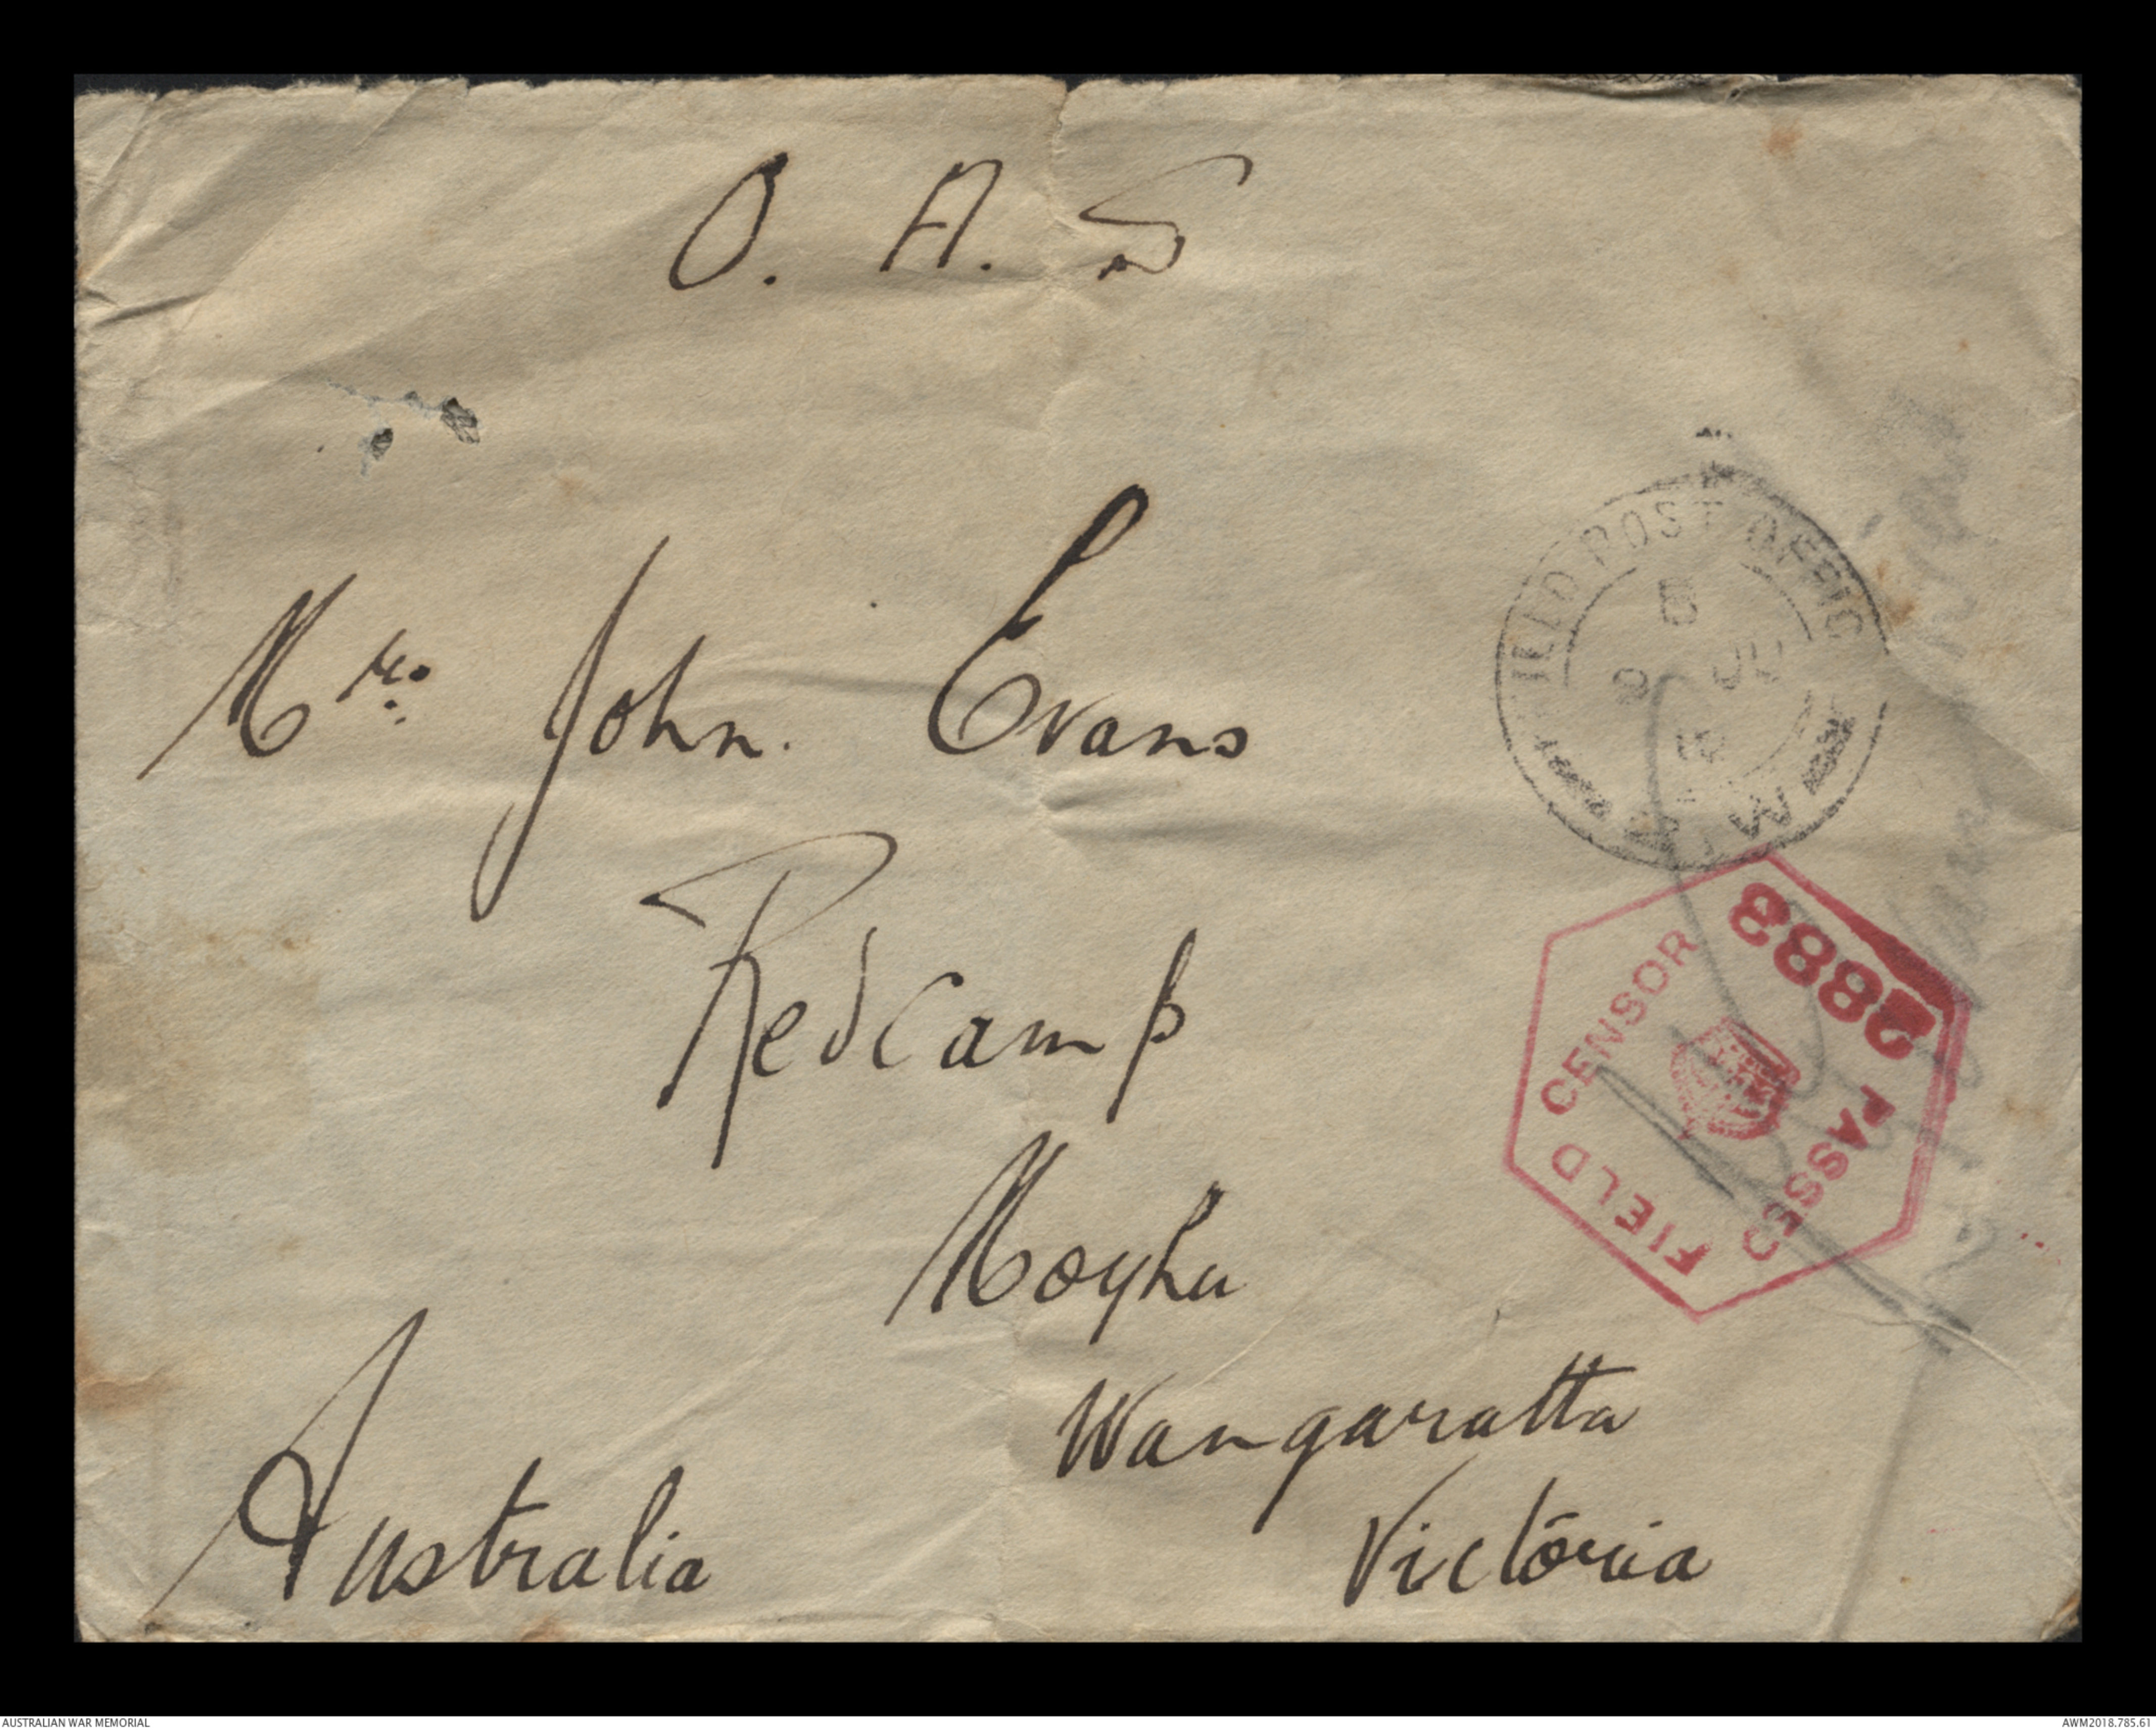 O. A. S
Mrs. John. Evans
Redcamp
Moyhu
Wangaratta
Victoria
Australia
FIELD POST OFFIC
9 JU
PASSED
FIELD CENSOR
2883
AUSTRALIAN WAR MEMORIAL
AWM2018.785.61